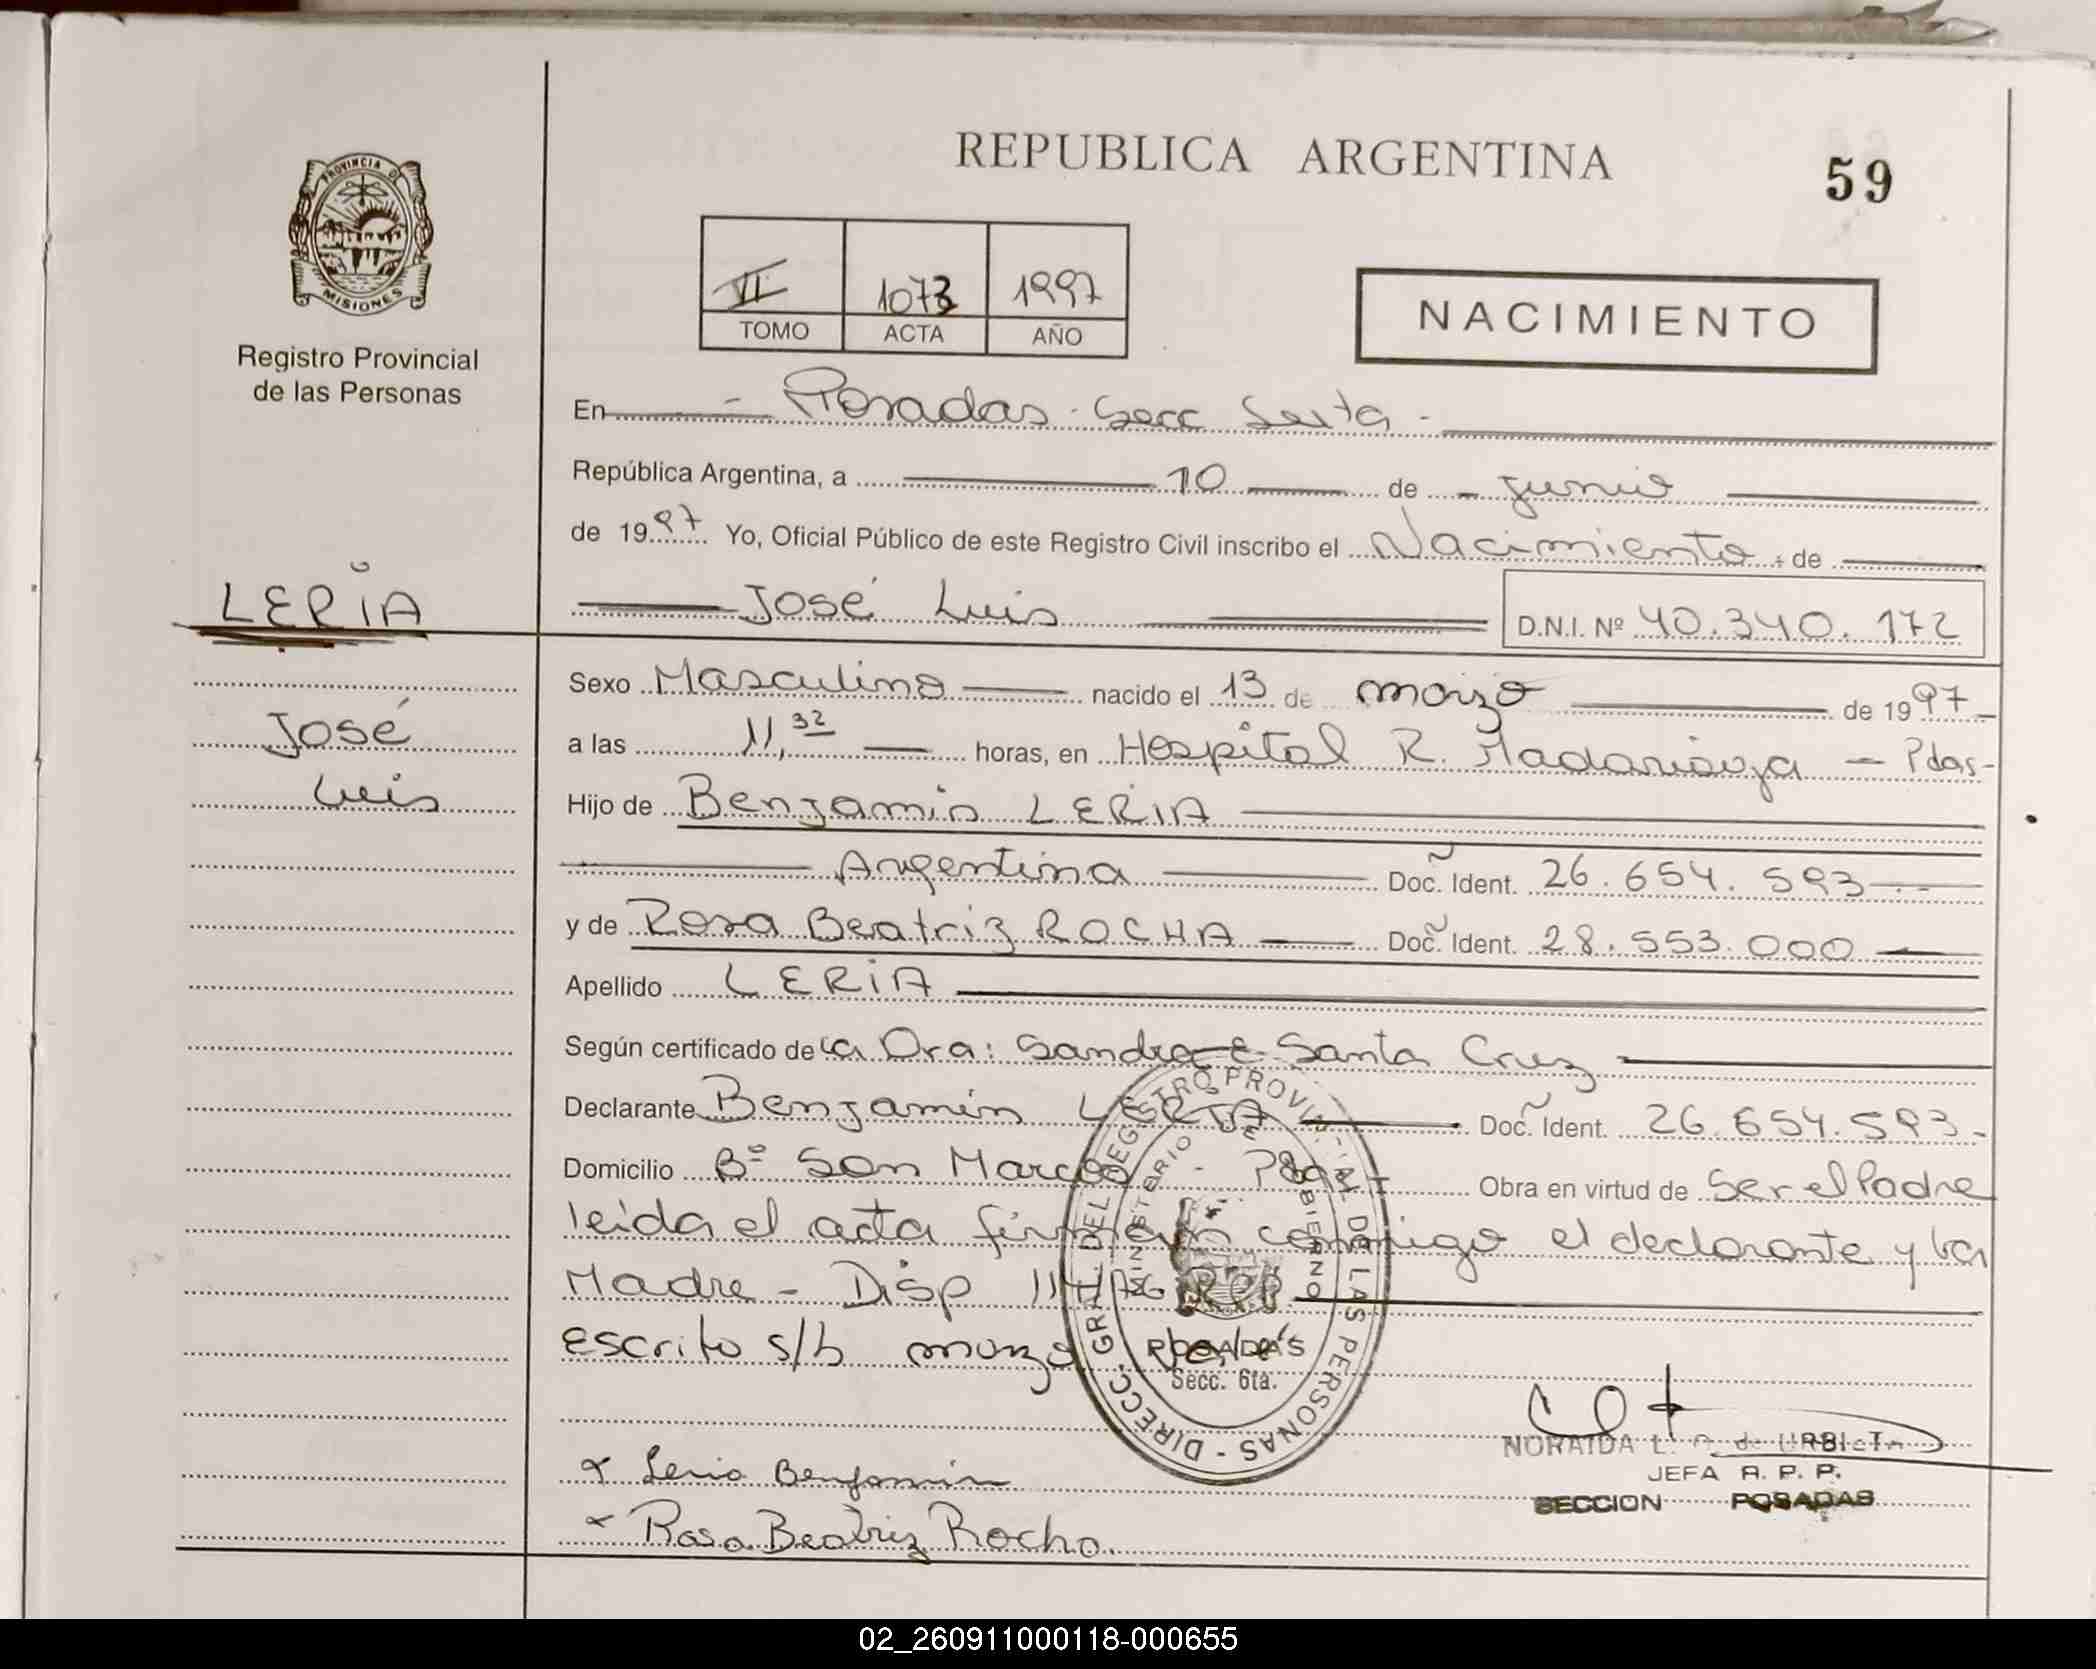 REPUBLICA ARGENTINA
59
PROVINCIA DE
MISIONES
Registro Provincial
de las Personas
VI 1073 1997
TOMO ACTA AÑO
NACIMIENTO
En - Posadas - Secc Sexta -
República Argentina, a 10 de - junio
de 1997 Yo, Oficial Público de este Registro Civil inscribo el Nacimiento de
LERIA
José Luis D.N.I. Nº 40.340.172
Sexo Masculino nacido el 13 de marzo de 1997
José
a las 11,32 horas, en Hospital R. Madariaga - Pdas-
Luis
Hijo de Benjamin LERIA
Argentina Doc. Ident. 26.654.593
y de Rosa Beatriz ROCHA Doc. Ident. 28.553.000
Apellido LERIA
Según certificado de la Dra: Sandra E. Santa Cruz
Declarante Benjamin LERIA Doc. Ident. 26.654.593-
Domicilio Bº San Marcos - Pdas- Obra en virtud de Ser el Padre
leida el acta firman conmigo el declarante y la
Madre - Disp
escrito s/b marzo Vale
DIRECC. GRAL. DEL REGISTRO PROVINCIAL DE LAS PERSONAS -
MINISTERIO DE GOBIERNO
POSADAS
Secc. 6ta.
NORAIDA L. de URBIETA
JEFA R. P. P.
SECCION POSADAS
x Leria Benjamin
x Rosa Beatriz Rocha
02_260911000118-000655